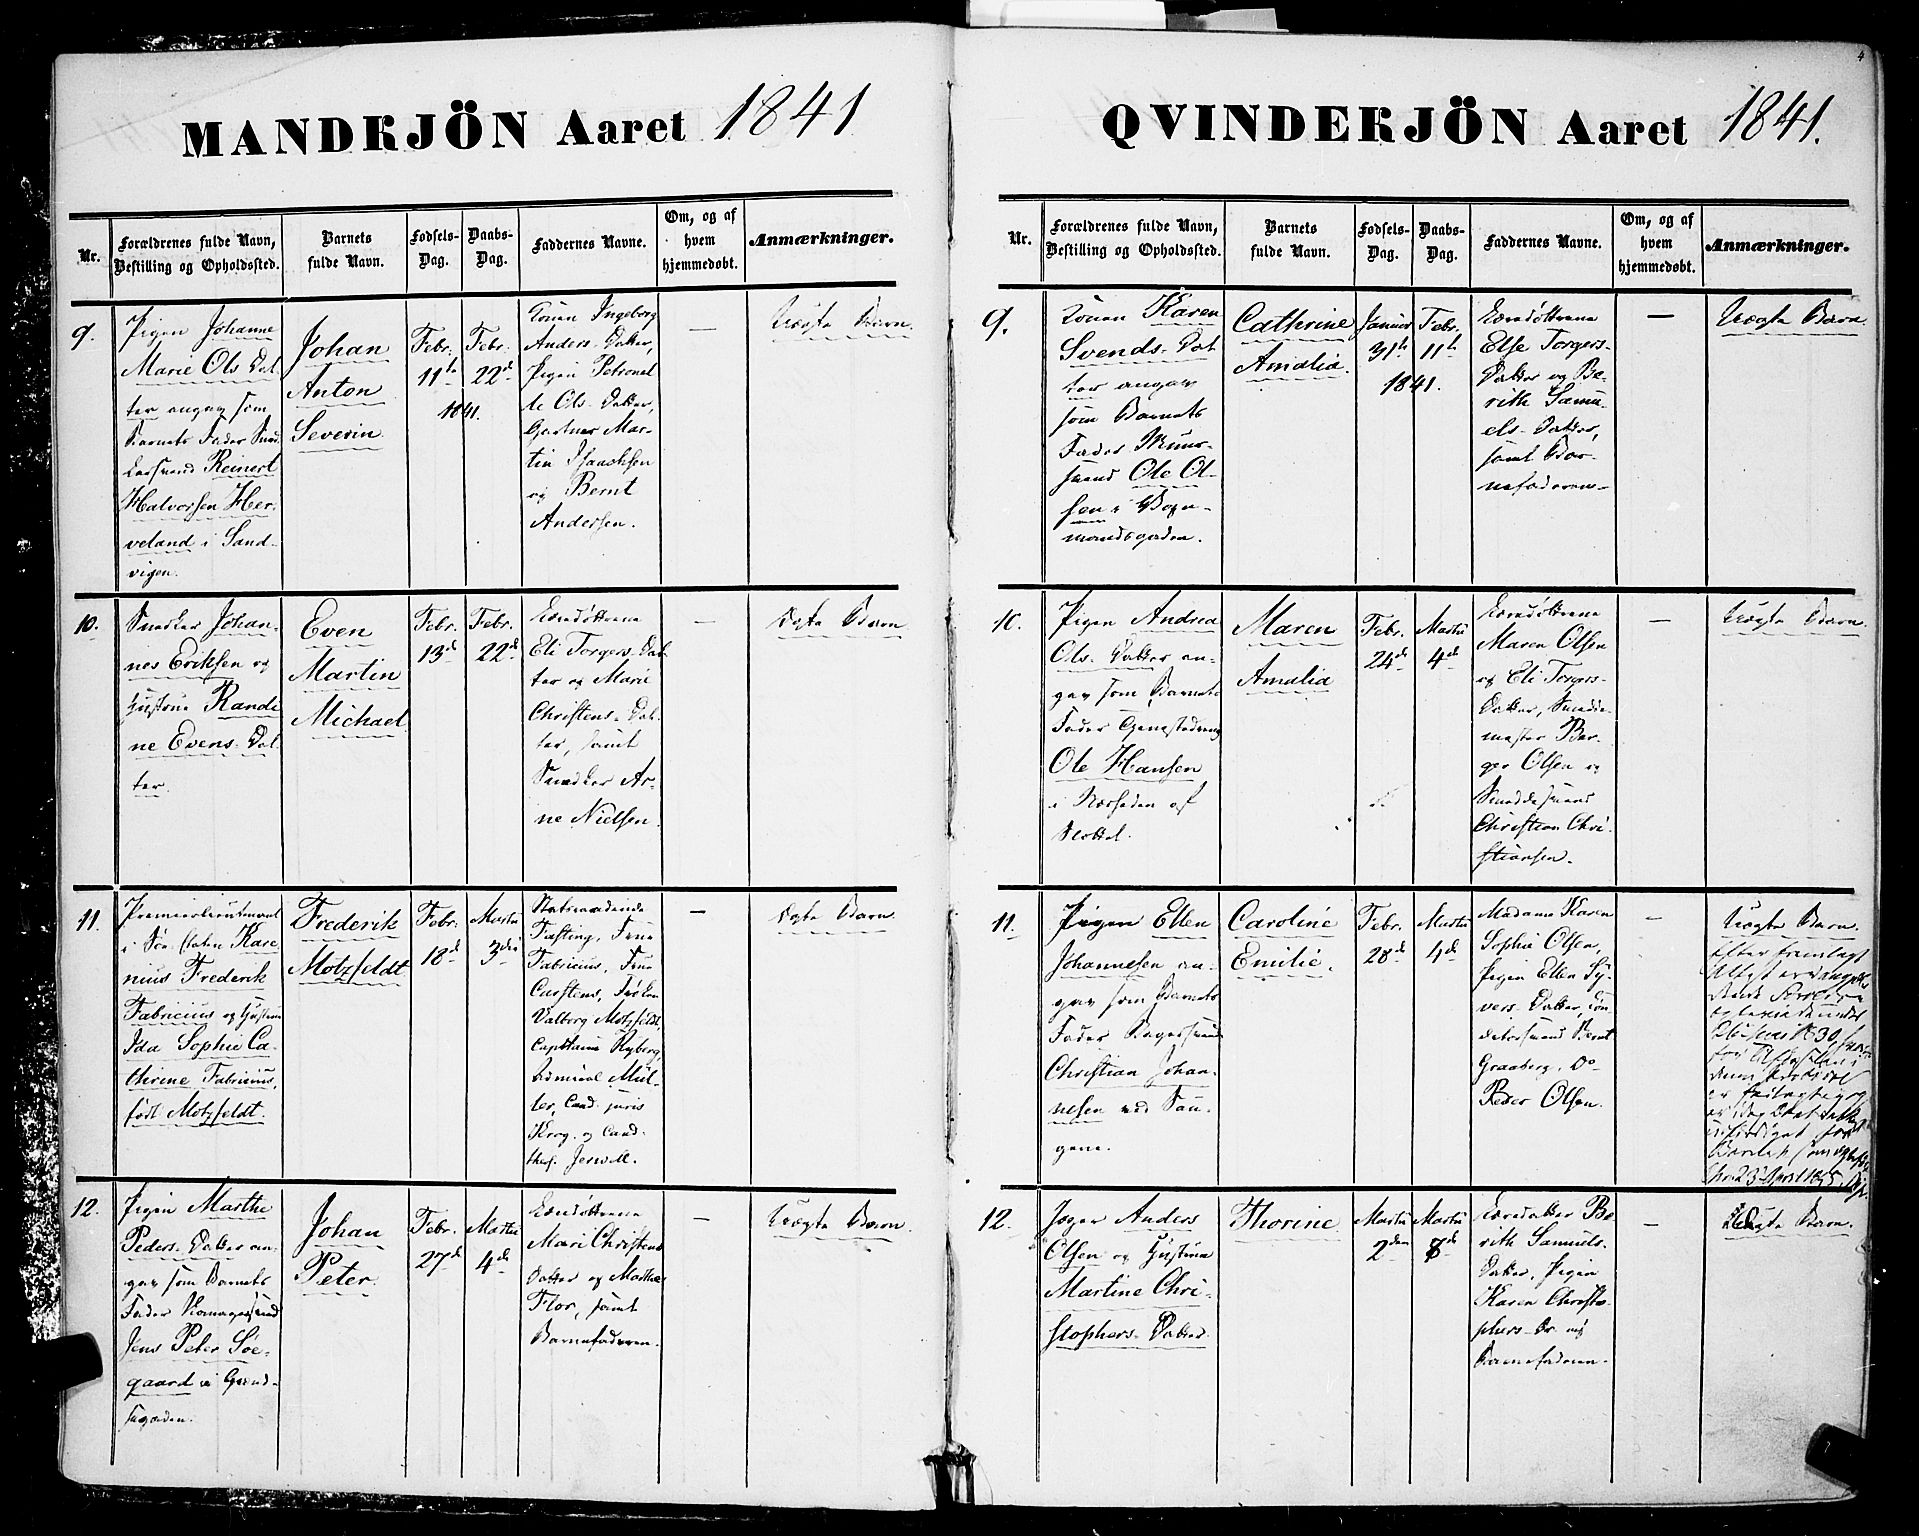 MANDKJÖN Aaret 1841
Nr.
Forældrenes fulde Navn,
Bestilling og Opholdssted.
Barnets
fulde Navn.
Fødsels-
Dag.
Daabs-
Dag.
Faddernes Navne.
Om, og af
hvem
hjemmedøbt.
Anmærkninger.
9.
Pigen Johanne
Marie Ols Dat
ter angav som
Barnets Fader
Reinert
Halvorsen Her
veland i Sand
vigen.
Johan
Anton
Severin.
Febr.
11te
Febr.
22de
1841.
Konen Ingeborg
Anders-Datter,
Pigen Petronel
le Ols-Datter,
Gartner Mar-
tin Isaachsen
og Bernt
Andersen.
—
Uægte Barn.
10.
Snedker Johan-
nes Eriksen og
Hustrue Randi
ne Evens-Dat
ter.
Even
Martin
Michael
Febr.
13de
Febr.
22de
Eli Torgers-Dat
ter og Marie
Christens-Dat-
ter, samt
Snedker Ar-
ne Nielsen.
—
Ægte Barn
11.
Premierlieutenant
i Søe-Etaten Kare
nius Frederik
Fabricius og Hustrue
Ida Sophie Ca-
thrine Fabricius,
født Motzfeldt.
Frederik
Motzfeldt
Febr.
18de
Martii
3die
Statsraadinde
Fasting, Frue
Fabricius, Frue
Carstens, Frøken
Valborg Motzfeldt,
Capitaine Ryberg,
Admiral Mül-
ler, Cand. juris
Krog, og Cand.
theol. Jerwell.
—
Ægte Barn.
12.
Pigen Marthe
Peders-Datter an-
gav som Barnets
Fader
Jens Peter Søe-
gaard i
Johan
Peter.
Febr.
27de
Martii
4de
Mari Christens
Datter og Marthe
Flor, samt
Barnefaderen.
—
Uægte Barn.
4
QVINDEKJÖN Aaret 1841.
Nr.
Forældrenes fulde Navn,
Bestilling og Opholdssted.
Barnets
fulde Navn.
Fødsels-
Dag.
Daabs-
Dag.
Faddernes Navne.
Om, og af
hvem
hjemmedøbt.
Anmærkninger.
9.
Konen Karen
Svends-Dat
ter angav
som Barnets
Fader Muur-
svend Ole Ol-
sen i
Cathrine
Amalia.
Januar
31te
Febr.
11te
1841.
Else Torgers-
Datter og Be-
rith Samu-
els-Datter,
samt Bar-
nefaderen-
—
Uægte Barn
10.
Pigen Andrea
Ols-Datter an-
gav som Barnets
Fader
Ole Hansen
i Nærheden af
Slottet.
Maren
Amalia
Febr.
24de
Martii
4de
Maren Olsen
og Eli Torgers-
Datter, Smedde-
mester Bir-
ger Olsen og
Smeddesvend
Christian Chri-
stiansen.
—
Uægte Barn.
11.
Pigen Ellen
Johannesen an-
gav som Barnets
Fader Bagersvend
Christian Johan-
nesen ved Sau-
gene.
Caroline
Emilie.
Febr.
28de
Martii
4de
Madame Karen
Sophie Olsen,
Pigen Ellen Sy-
vers-Datter,
Bernt
Graaberg, Do
Peder Olsen.
—
Uægte Barn.
Efter fremlagt
12.
Anders
Olsen og Hustrue
Martine Chri-
stophers-Datter.
Thorine
Martii
2den
Martii
8de
Be-
rith Samuels-
Datter, Pigen
Karen Christo-
phers-Dr. og
Barnefaderen.
—
Ægte Barn.